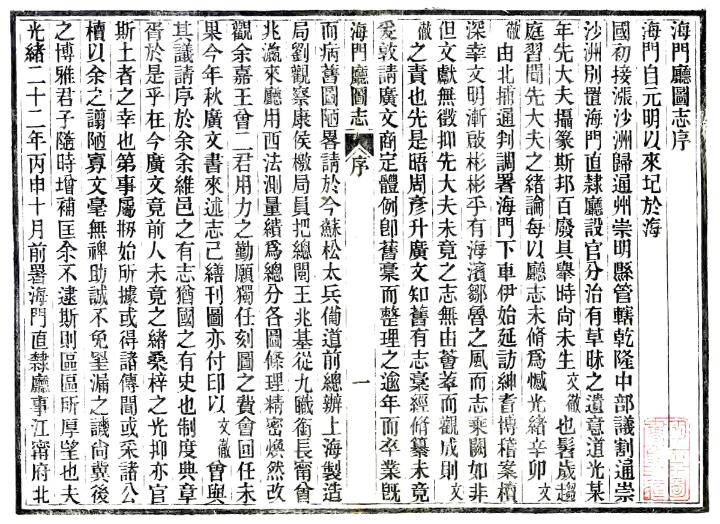 海門廳圖志序
海門自元明以來圮於海
國初接漲沙洲歸通州崇明縣管轄乾隆中部議割通崇
沙洲別置海門直隸廳設官分治有草昧之遺意道光某
年先大夫攝篆斯邦百廢具舉時尚未生文徹也髫歲趨
庭習聞先大夫之緒論每以廳志未脩爲憾光緒辛卯文
徹由北捕通判調署海門下車伊始延訪紳耆博稽案牘
深幸文明漸啟彬彬乎有海濱鄒魯之風而志乘闕如非
但文獻無徵抑先大夫未竟之志無由薈萃而觀成則文
徹之責也先是晤周彥升廣文知舊有志稾經脩纂未竟
爰敦請廣文商定體例卽舊稾而整理之逾年而卒業旣
海門廳圖志 序 一
而病舊圖陋畧請於今蘇松太兵備道前總辦上海製造
局劉觀察康侯檄局員把總閻王兆基從九職銜長甯曾
兆瀛來廳用西法測量繕爲總分各圖條理精密煥然改
觀余嘉王曾二君用力之勤願獨任刻圖之費會回任未
果今年秋廣文書來述志已繕刊圖亦付印以文徹曾與
其議請序於余余維邑之有志猶國之有史也制度典章
胥於是乎在今廣文竟前人未竟之緒桑梓之光抑亦官
斯土者之幸也第事屬刱始所據或得諸傳聞或采諸公
牘以余之譾陋寡文毫無裨助誠不免罣漏之譏尚冀後
之博雅君子隨時增補匡余不逮斯則區區所厚望也夫
光緒二十二年丙申十月前署海門直隸廳事江甯府北